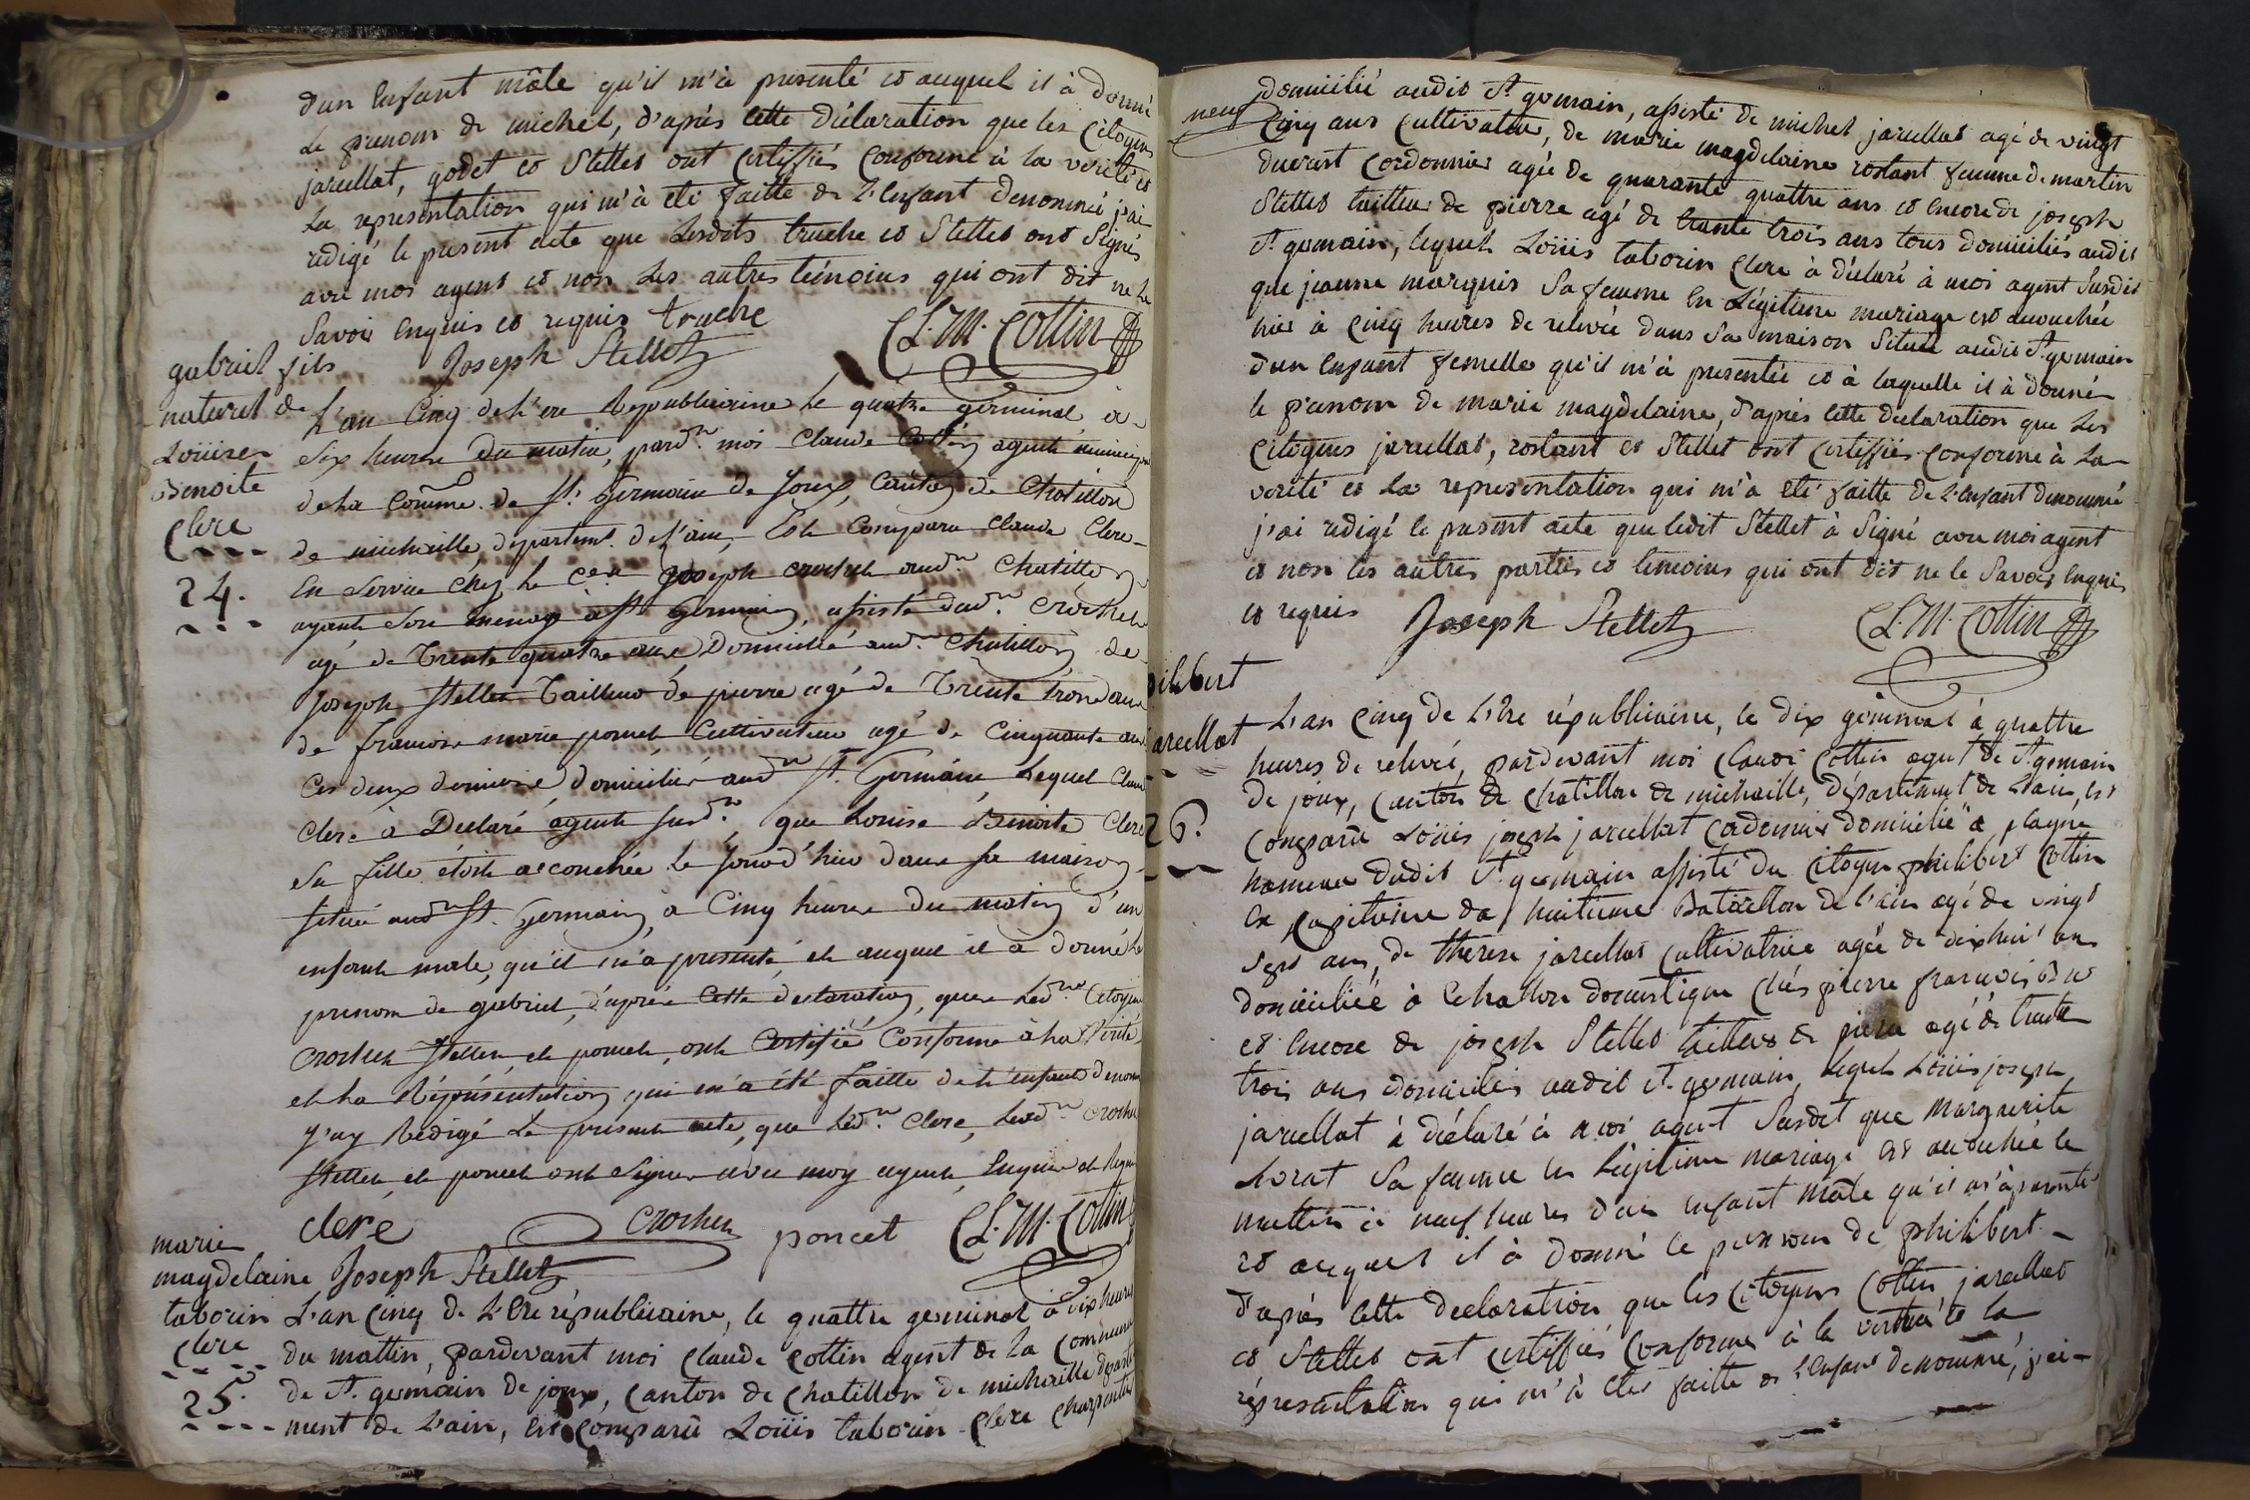 d'un Enfant mâle qu'il m'à presenté et auquel il à donné
Le prenom de michel, d'après cette Déclaration que les Citoyens
jarcellat, godet et Stellet ont certiffiés Conforme à la verité et
La representation qui m'à eté faitte de L'Enfant denommé j'ai
redigé le present acte que Lesdits truche et Stellet ont Signés
avec moi agent et non Les autres témoins qui ont dit ne le
Savoir Enquis et requis truche
Joseph Stellet CL. M. Cottin
gabriel fils
naturel de
Loüise
Benoite
Clerc
24.
L'an Cinq de L'ere Republicaine le quatre germinal à
Six heures du matin, pard.n moi Claude Cottin agent municipal
de la Comme. de St. Germain de Joux, Canton de Chatillon
de michaille, departemt. de l'ain, Est Comparu Claude Clerc
En Service chez le Cen Joseph crochet aud.n Chatillon
ayant son menage à St Germain, assisté dud.n Crochet
agé de Trente quatre ans Domicilié aud.n Chatillon, de
Joseph Stellet Tailleur de pierre agé de Trente trois ans
de francois marie poncet Cultivateur agé de Cinquante ans
Ces deux derniers domiciliés aud.n St. Germain, Lequel Claude
Clerc à Declaré agent susd.n que Louise Benoite Clerc
Sa fille étoit accouchée le jour d'hier dans sa maison
située aud.n St. Germain, à Cinq heures du matin d'un
enfant male, qu'il m'a presenté, et auquel il à donné le
prenom de gabriel, d'après Cette declaration, que Lesd.n Citoyens
crochet Stellet et poncet, ont Certifié Conforme à la Verité
et la Réprésentation qui m'a été faitte de l'enfant denommé
j'ay Rédigé Le present acte, que led.n Clerc, Lesd.n Crochet
Stellet, et poncet ont Signés avec moy agent, Enquis et Requis
clerc crochet poncet CL. M. Cottin
Joseph Stellet
marie
magdelaine
taborin
Clerc
25.
L'an Cinq de L'Ere républicaine, le quattre germinal à dix heures
du mattin, pardevant moi Claude Cottin agent de La Commune
de St. germain de joux, Canton de Chatillon de michaille départe
ment de L'ain, est comparû Loüis taborin Clerc charpentier
domicilié audit St. germain, assisté de michel jarcellat agé de vingt
neuf
Cinq ans Cultivateur, de marie magdelaine rostant femme de martin
ducrast Cordonnier agée de quarante quattre ans et Encore de joseph
Stellet tailleur de pierre agé de trante trois ans tous domiciliés audit
St. germain, lequel Loüis taborin Clerc à déclaré à moi agent Susdit
que jeanne marquis Sa femme En Légitime mariage est accouchée
hier à Cinq heures de relevée dans Sa maison Située audit St. germain
d'un Enfant femelle qu'il m'à presentée et à laquelle il à donné
le prenom de marie magdelaine, d'après cette declaration que Les
Citoyens jarcellat, rostant et Stellet ont certiffiés Conforme à La
verité et La representation qui m'a eté faitte de L'Enfant denommé
j'ai redigé le present acte que ledit Stellet à Signé avec moi agent
et non les autres parties et temoins qui ont dit ne le Savoir Enquis
et requis Joseph Stellet CL. M. Cottin
ilibert
arcellat
26.
L'an Cinq de L'Ere républicaine, le dix geminal à quattre
heures de relevée, pardevant moi Claude Cottin agent de St. germain
de joux, Canton de Chatillon de michaille, département de L'ain, est
Comparû Loüis joseph jarcellat Cordonnier domicilié à plagne
hameau dudit St. germain assisté du Citoyen philibert Cottin
Ex Capitaine du huitieme Bataillon de l'ain agé de vingt
sept ans, de therese jarcellat Cultivatrice agée de dixhuit ans
domiciliée à Echallon domestique chés pierre francois
et Encore de joseph Stellet tailleur de pierre agé de trante
trois ans domiciliés audit St. germain, lequel Loüis joseph
jarcellat à déclaré à moi agent Susdit que Marguerite
Sa femme En Légitime mariage est accouchée le
mattin à neuf heures d'un Enfant mâle qu'il m'à presenté
et auquel il à donné le prenom de philibert
d'après cette declaration que les Citoyens Cottin, jarcellat
et Stellet ont certiffiés Conforme à la verité et la
représentation qui m'à eté faitte de L'Enfant denommé, j'ai